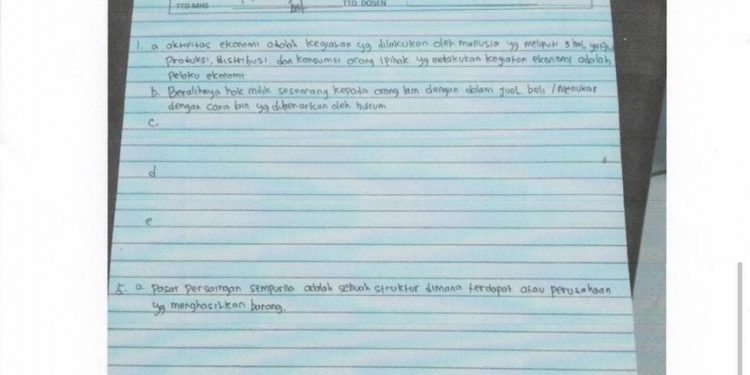 TTD MHS
TTD DOSEN
1. a aktivitas ekonomi adalah kegiatan yg dilakukan oleh manusia yg meliputi 3 hal, yaitu
Produksi, distribusi, dan konsumsi orang / pihak yg melakukan kegiatan ekonomi adalah
pelaku ekonomi
b. Beralihnya hak milik seseorang kepada orang lain dengan dalam jual beli / menukar
dengan cara lain yg dibenarkan oleh hukum
c.
d
e
5. a. Pasar persaingan sempurna adalah sebuah struktur dimana terdapat atau perusahaan
yg menghasilkan barang.